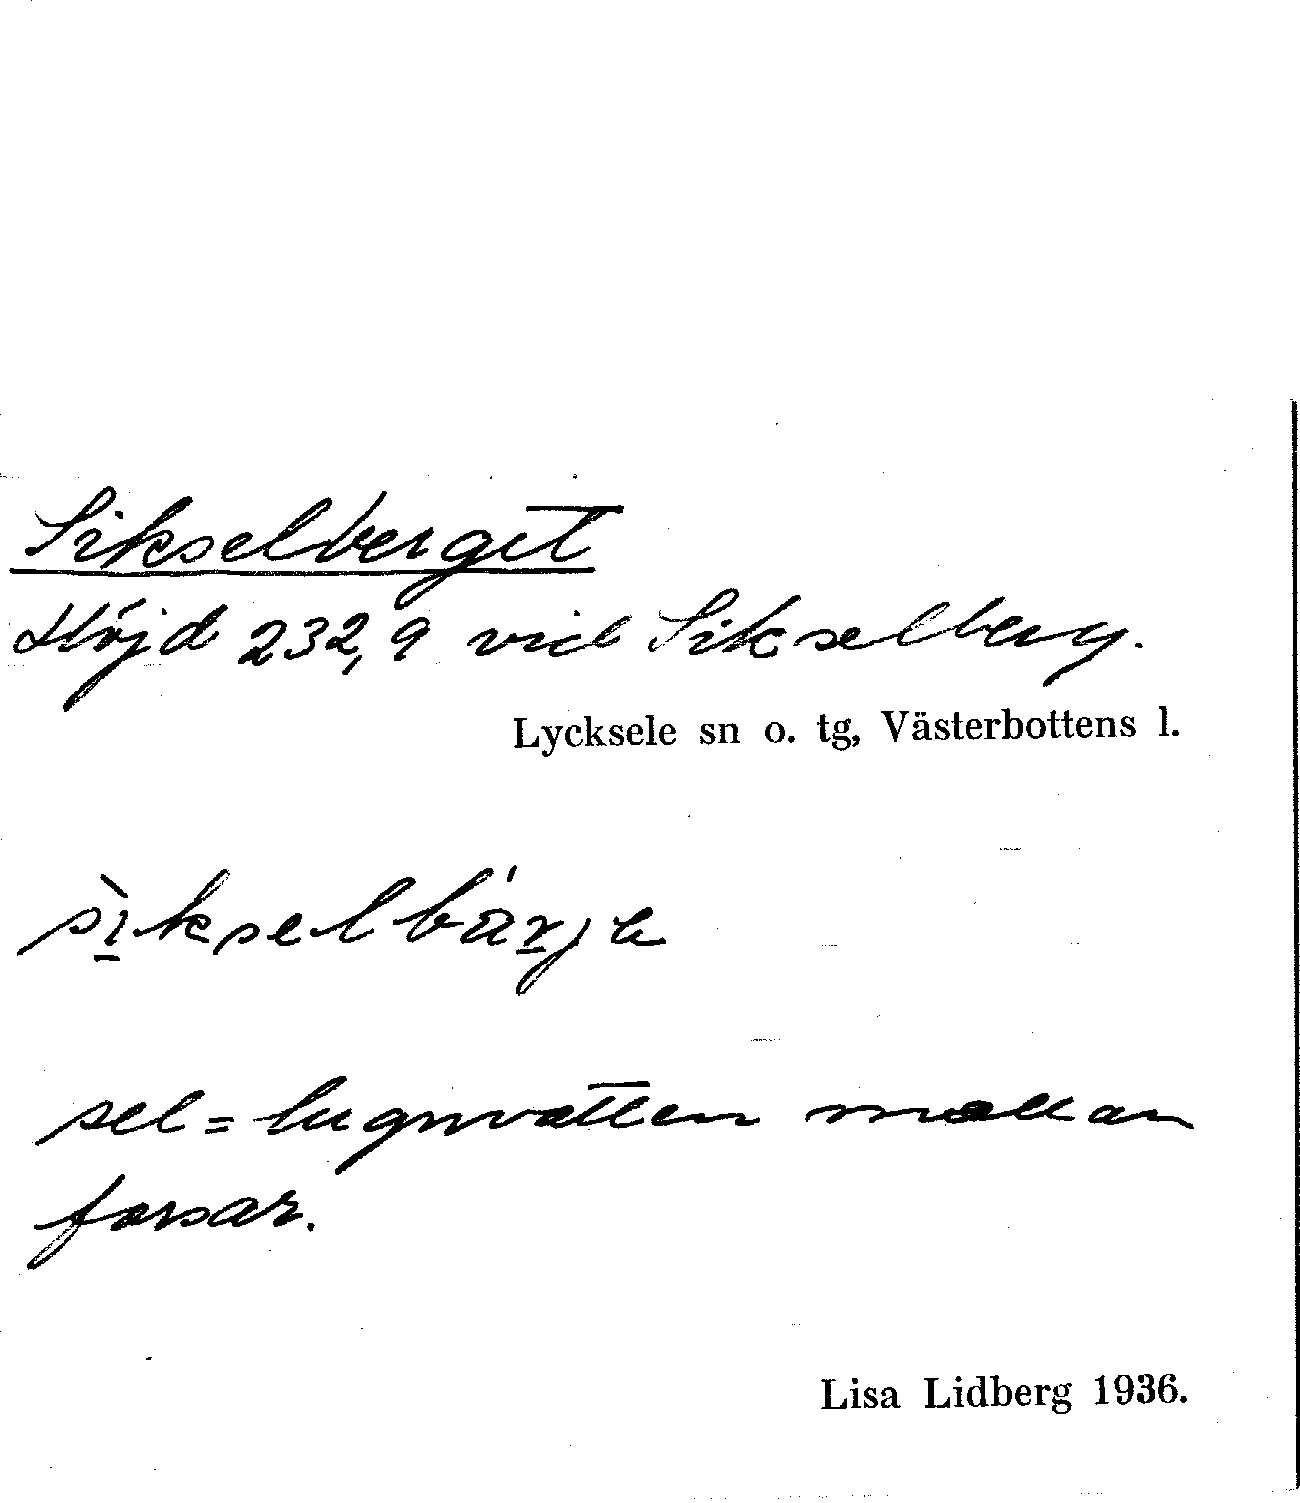 Sikselberget
Höjd 232,9 vid Sikselberg.
Lycksele sn o. tg, Västerbottens l.
sel = lugnvatten mellan
forsar.
Lisa Lidberg 1936.